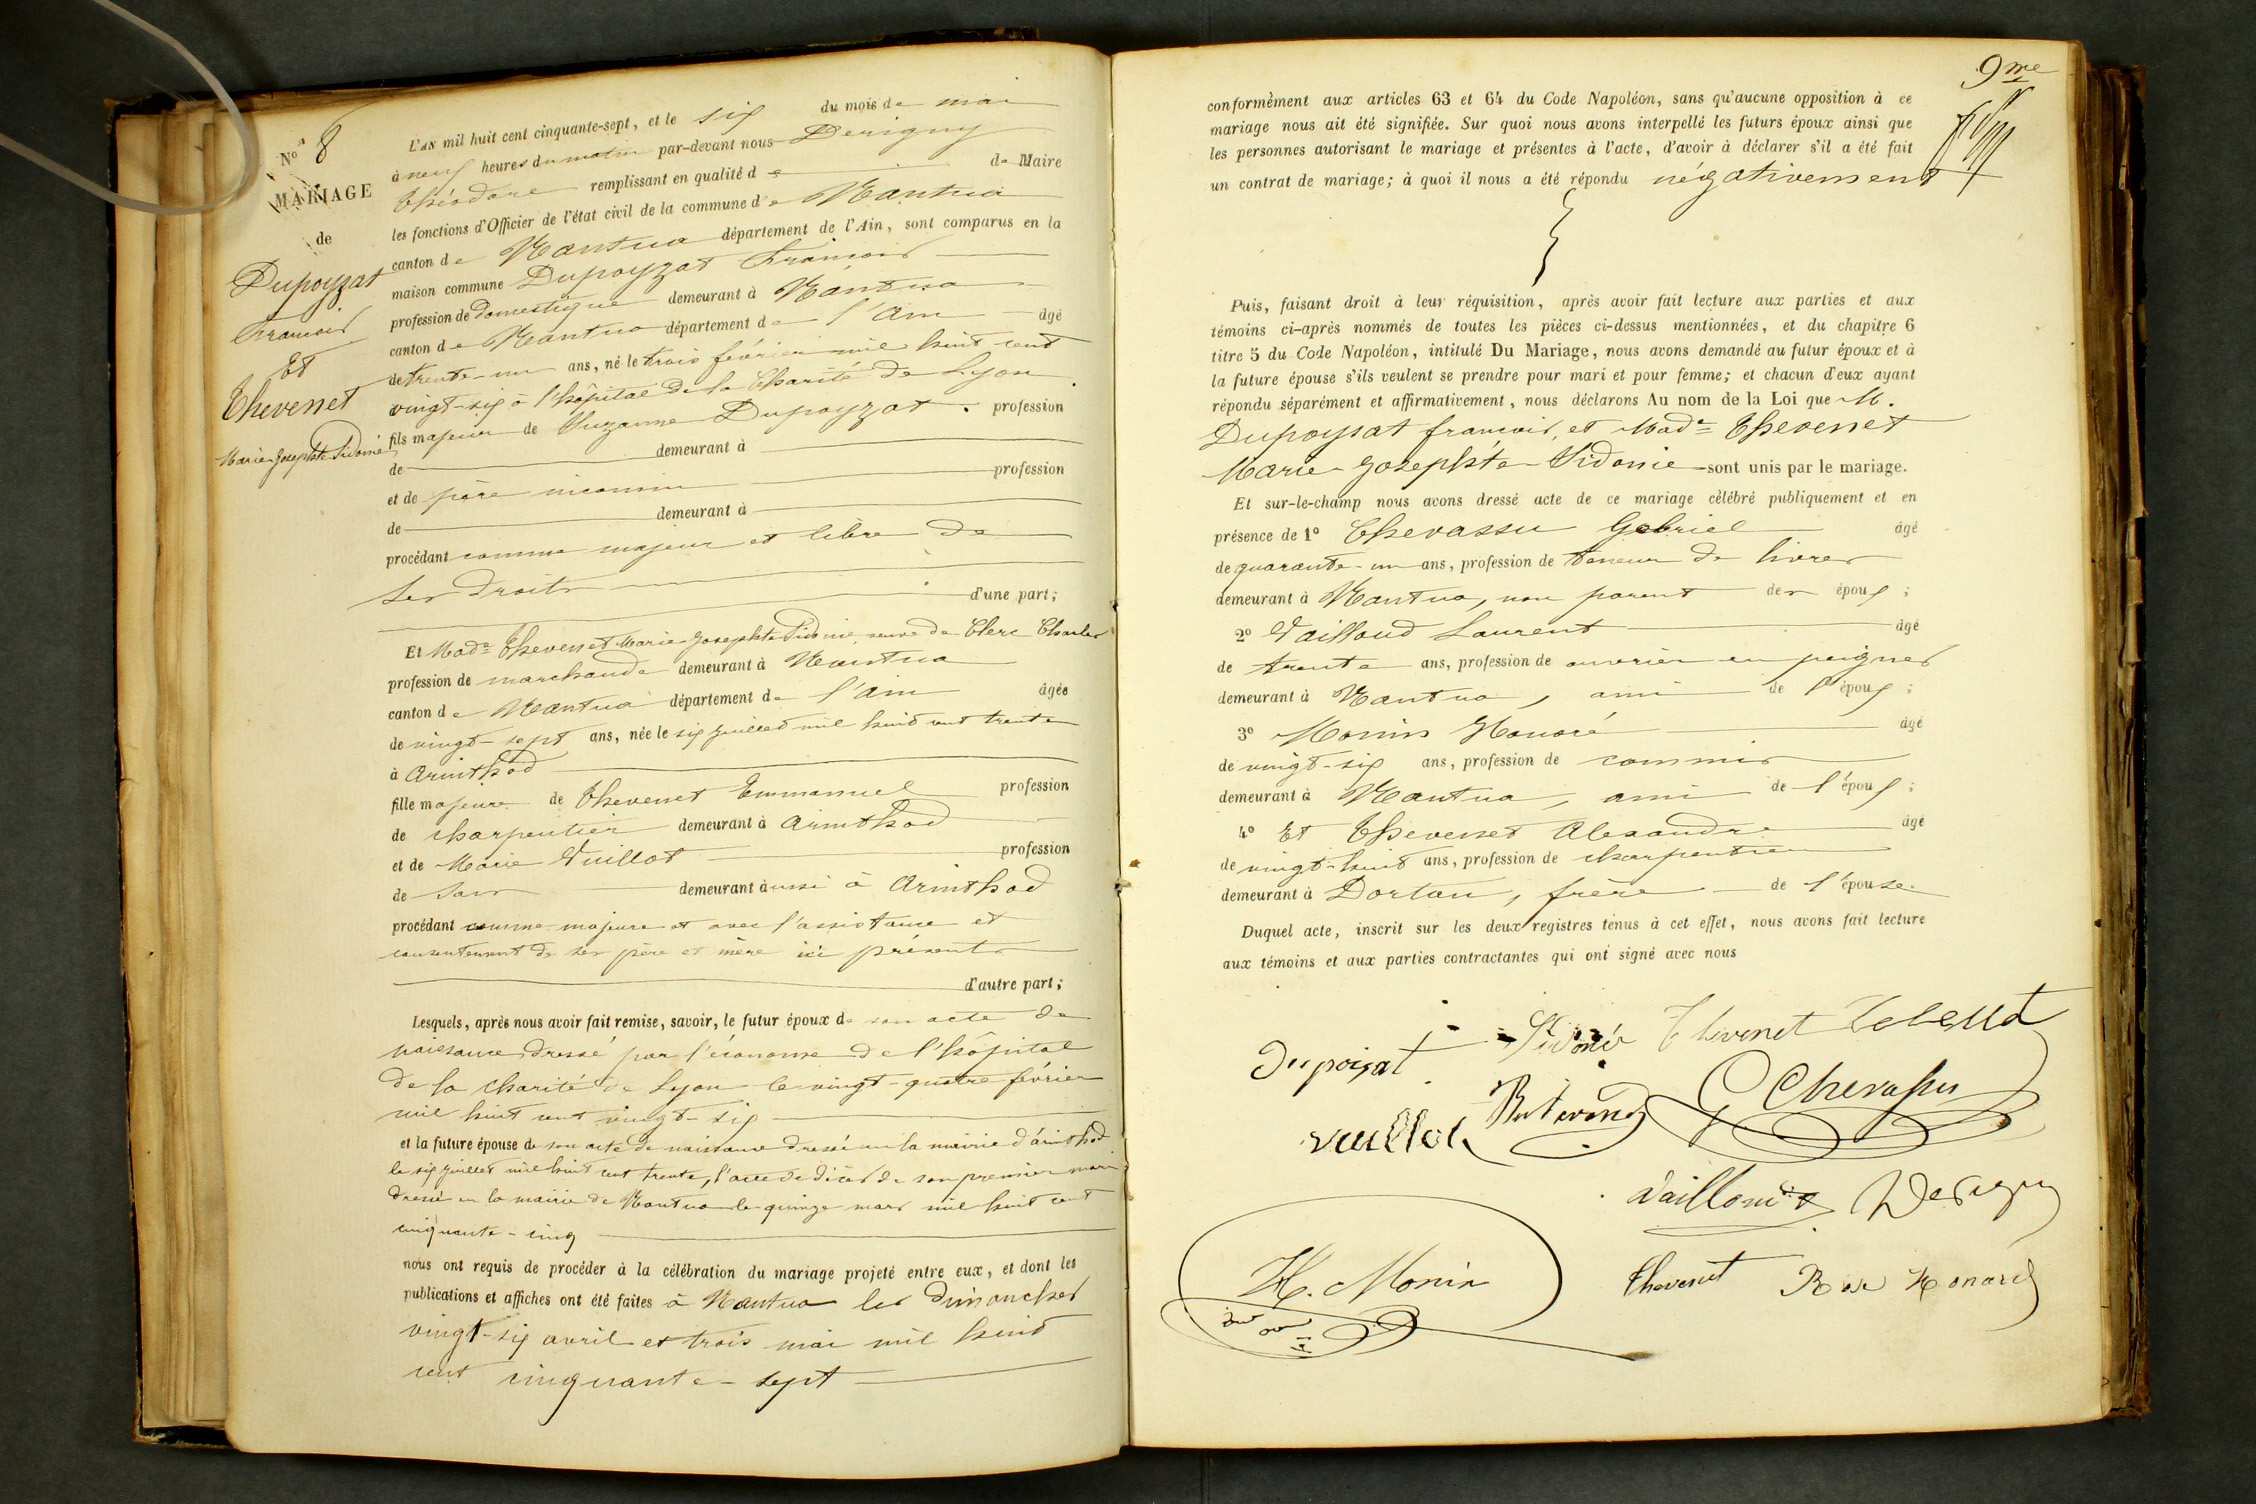 N° 8
MARIAGE
de
Dupoyzat
francois
Et
Thevenet
Marie Josephte Sidonie
L'AN mil huit cent cinquante-sept, et le six du mois de mai
à neuf heures du matin par-devant nous Derigny
théodore remplissant en qualité de de Maire
les fonctions d'Officier de l'état civil de la commune de Nantua
canton de Nantua département de l'Ain, sont comparus en la
maison commune Dupoyzat francois
profession de domestique demeurant à Nantua
canton de Nantua département de l'ain âgé
de trente-un ans, né le trois février mil huit cent
vingt-six à l'hôpital de la Charité de Lyon
fils majeur de Suzanne Dupoyzat. profession
de demeurant à
et de père inconnu profession
de demeurant à
procédant comme majeur et libre de
ses droits
d'une part;
Et Made Thevenet Marie Josephte Sidonie veuve de Clerc Charles
profession de marchande demeurant à Nantua
canton de Nantua département de l'ain âgée
de vingt-sept ans, née le six juillet mil huit cent trente
à arinthod
fille majeure de Thevenet Emmanuel profession
de charpentier demeurant à arinthod
et de Marie Vuillot profession
de sans demeurant aussi à arinthod
procédant comme majeure et avec l'assistance et
consentement de ses père et mère ici présents
d'autre part;
Lesquels, après nous avoir fait remise, savoir, le futur époux de son acte de
naissance dressé par l'économe de l'hôpital
de la charité de Lyon le vingt-quatre février
mil huit cent vingt-six
et la future épouse de son acte de naissance dressé en la mairie d'arinthod
le six juillet mil huit cent trente, l'acte de décès de son premier mari
dressé en la mairie de Nantua le quinze mars mil huit cent
cinquante-cinq
nous ont requis de procéder à la célébration du mariage projeté entre eux, et dont les
publications et affiches ont été faites à Nantua les dimanches
vingt-six avril et trois mai mil huit
cent cinquante-sept
9me
conformément aux articles 63 et 64 du Code Napoléon, sans qu'aucune opposition à ce
mariage nous ait été signifiée. Sur quoi nous avons interpellé les futurs époux ainsi que
les personnes autorisant le mariage et présentes à l'acte, d'avoir à déclarer s'il a été fait
un contrat de mariage; à quoi il nous a été répondu négativement
Puis, faisant droit à leur réquisition, après avoir fait lecture aux parties et aux
témoins ci-après nommés de toutes les pièces ci-dessus mentionnées, et du chapitre 6
titre 5 du Code Napoléon, intitulé Du Mariage, nous avons demandé au futur époux et à
la future épouse s'ils veulent se prendre pour mari et pour femme; et chacun d'eux ayant
répondu séparément et affirmativement, nous déclarons Au nom de la Loi que M.
Dupoysat francois, et Made Thevenet
Marie-Josephte-Sidonie sont unis par le mariage.
Et sur-le-champ nous avons dressé acte de ce mariage célébré publiquement et en
présence de 1° Chevassu Gabriel âgé
de quarante-un ans, profession de teneur de livres
demeurant à Nantua, non parent des époux;
2° Vailloud Laurent âgé
de trente ans, profession de ouvrier en peignes
demeurant à Nantua, ami de l'époux;
3° Monin Honoré âgé
de vingt-six ans, profession de commis
demeurant à Nantua, ami de l'époux;
4° Et Thevenet Alexandre âgé
de vingt-huit ans, profession de charpentier
demeurant à Dortan, frère de l'épouse
Duquel acte, inscrit sur les deux registres tenus à cet effet, nous avons fait lecture
aux témoins et aux parties contractantes qui ont signé avec nous
Dupoizat Sidonie Thevenet
G Chevassu
vuillot
Vailloud Derigny
H. Monin Thevenet